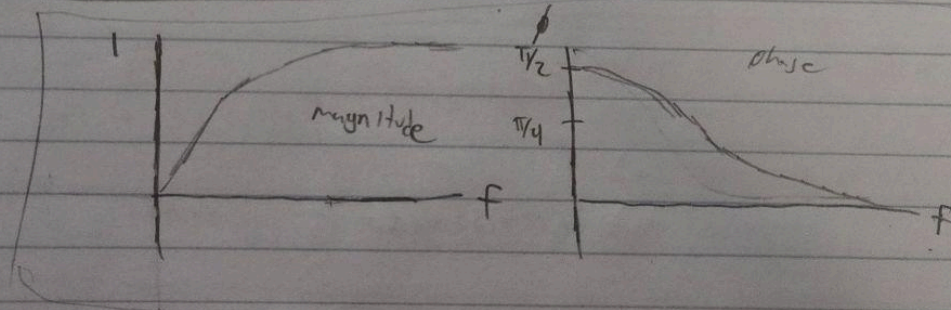 1
magnitude
f
ϕ
π/2
π/4
phase
f